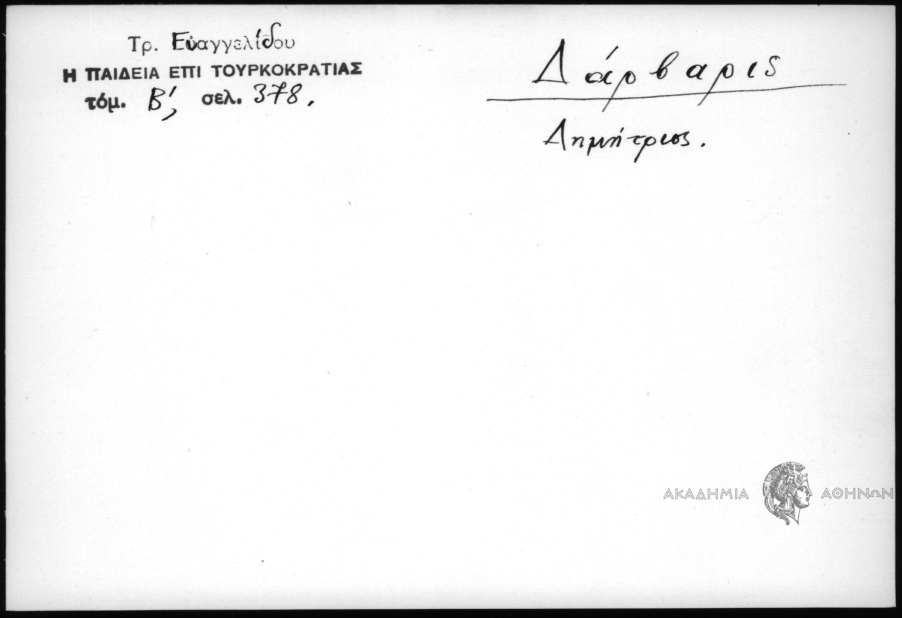 Τρ. Εὐαγγελίδου
Η ΠΑΙΔΕΙΑ ΕΠΙ ΤΟΥΡΚΟΚΡΑΤΙΑΣ
τόμ. Β', σελ. 378.
Δάρβαρις
Δημήτριος.
ΑΚΑΔΗΜΙΑ ΑΘΗΝΩΝ